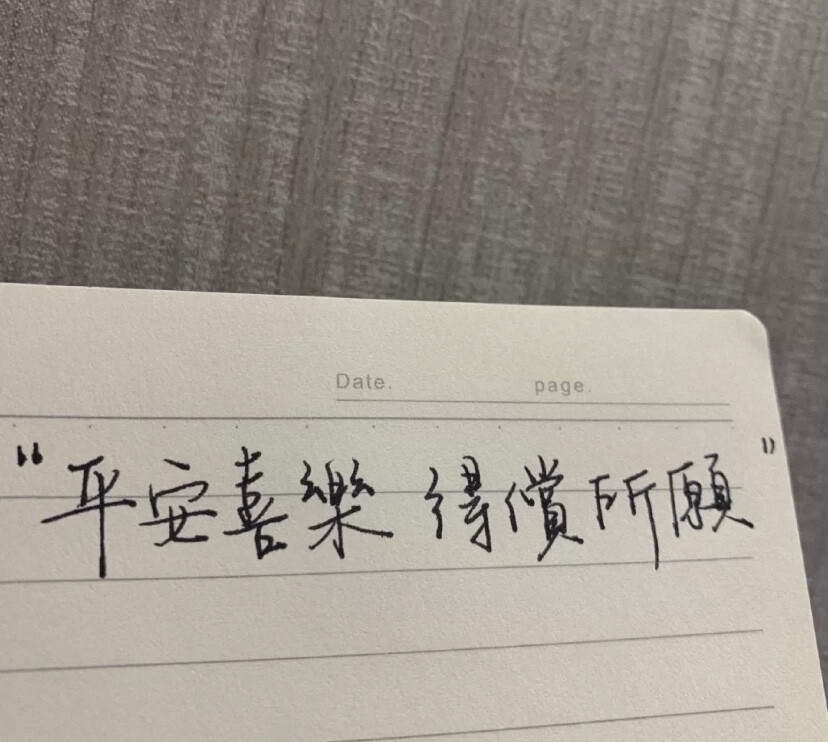 Date. page.
“平安喜樂 得償所願”